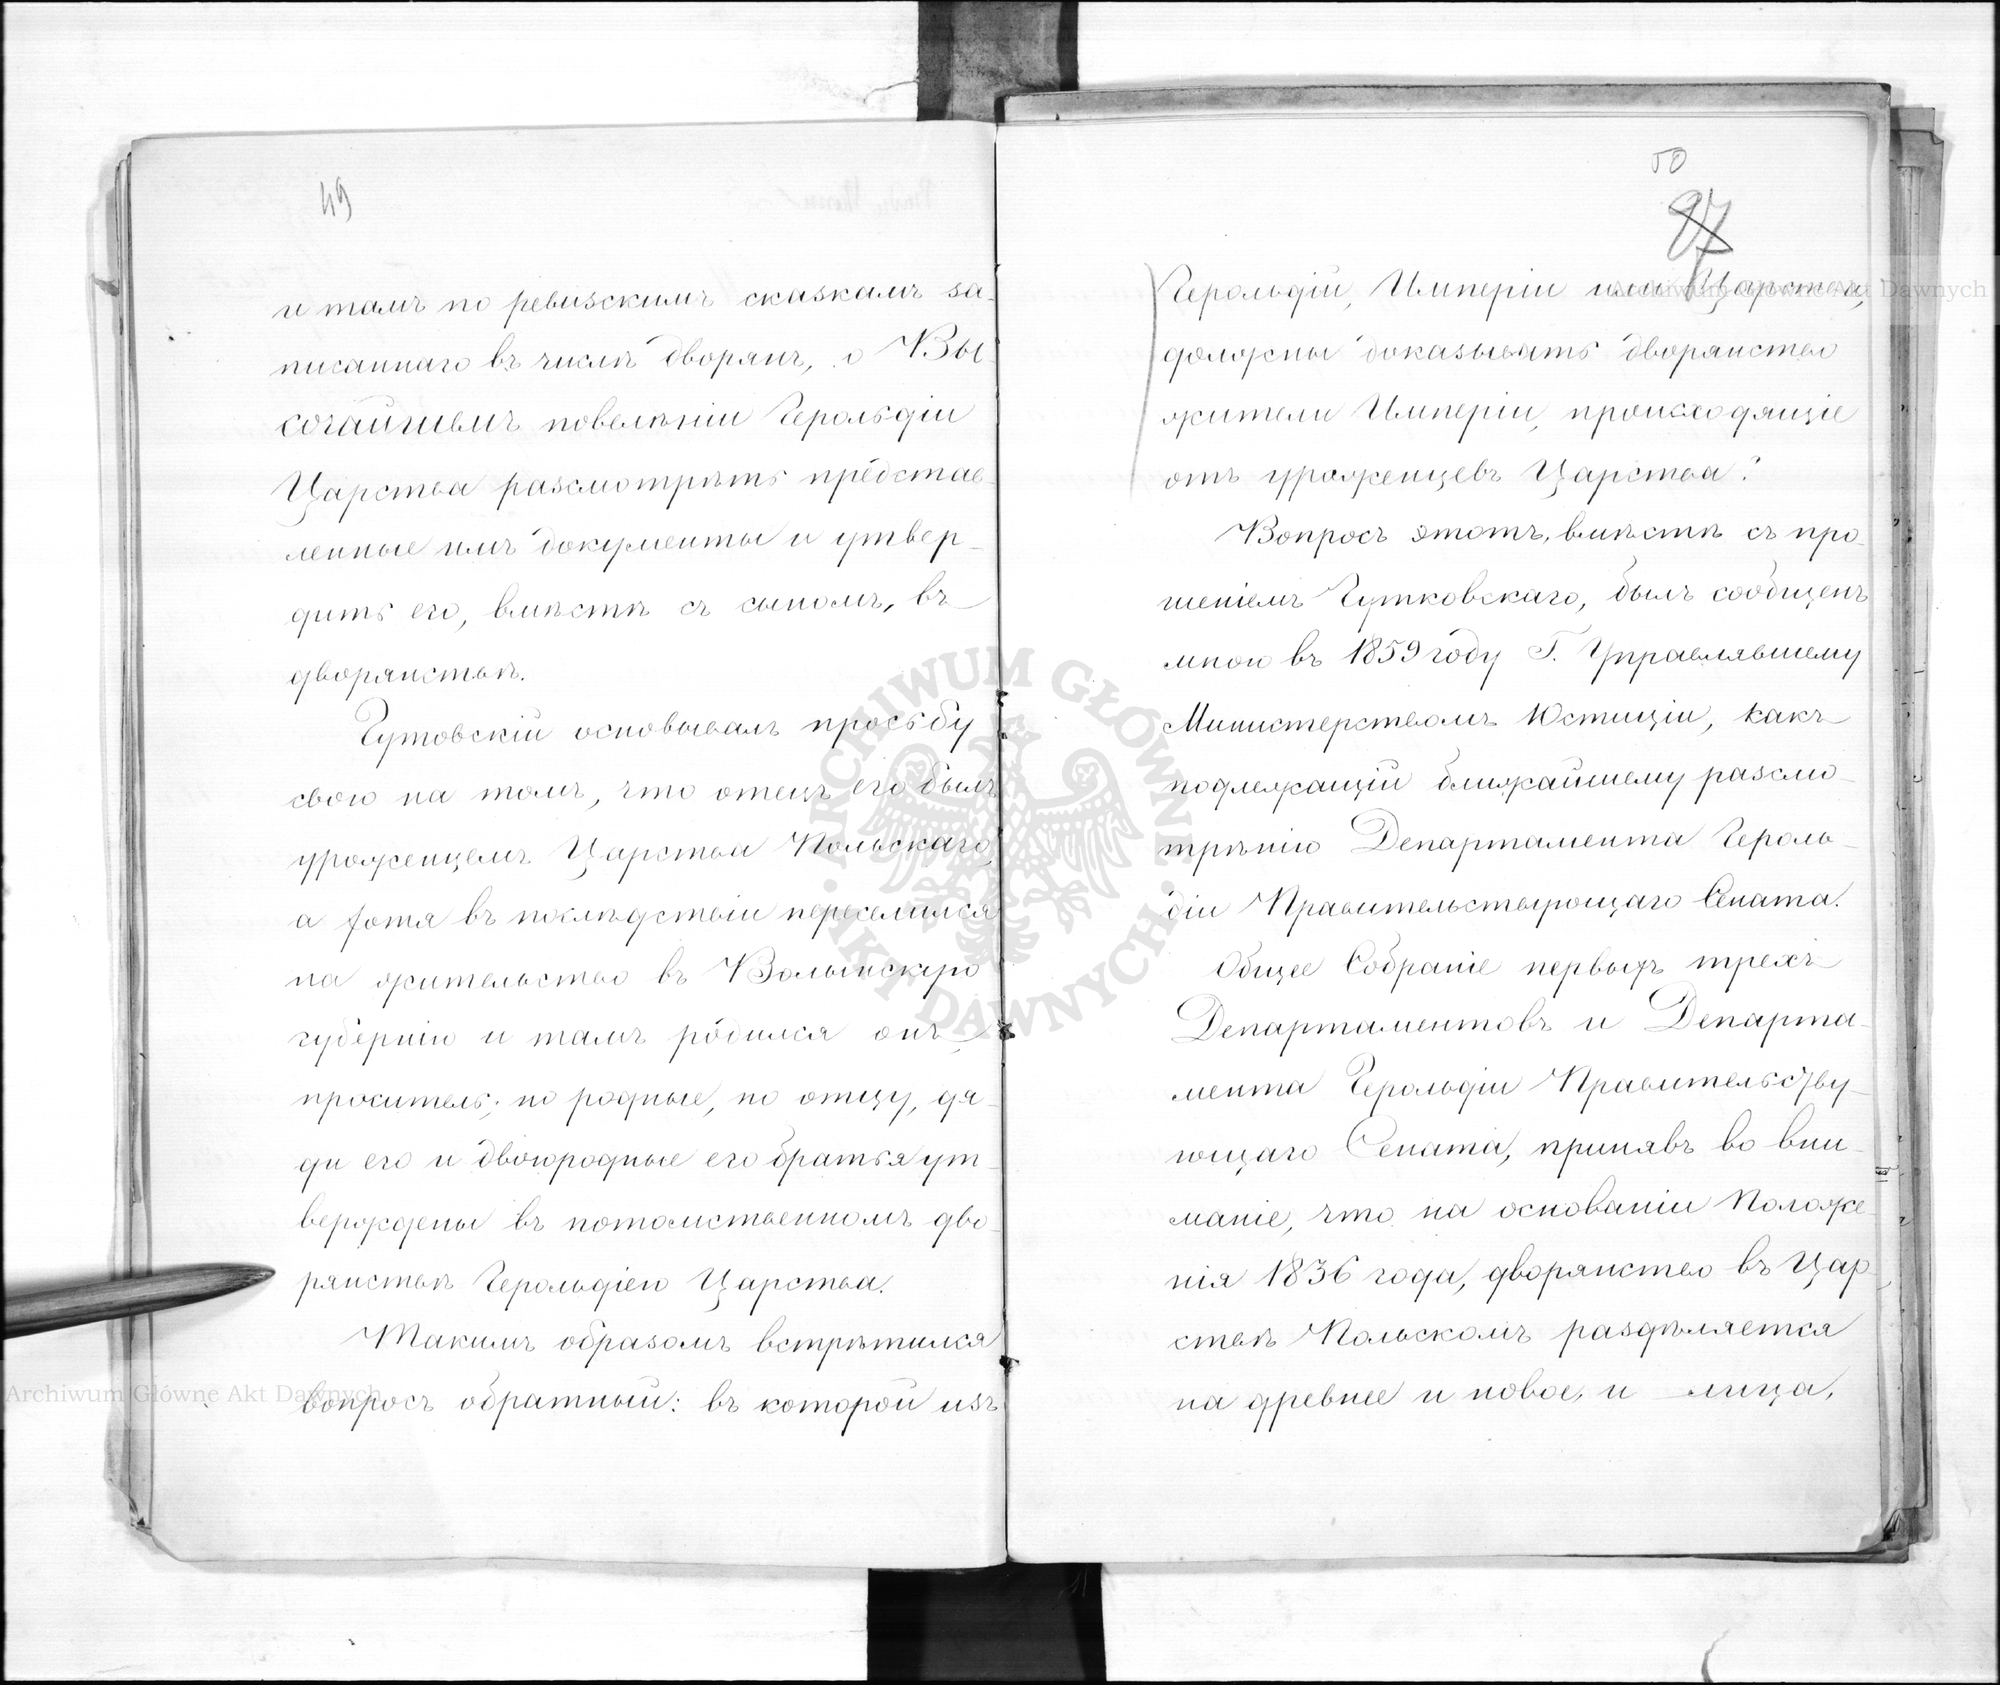 49
и тамъ по ревизскимъ сказкамъ за-
писаннаго въ числѣ дворянъ, о Вы-
сочайшемъ повелѣніи Герольдіи
Царства разсмотрѣть представ-
ленные имъ документы и утвер-
дить его, вмѣстѣ съ сыномъ, въ
дворянствѣ.
Гутовскій основывалъ просьбу
свою на томъ, что отецъ его былъ
уроженцемъ Царства Польскаго,
а хотя въ послѣдствіи переселился
на жительство въ Волынскую
губернію и тамъ родился онъ,
проситель; но родные, по отцу, дя-
ди его и двоюродные его братья ут-
верждены въ потомственномъ дво-
рянствѣ Герольдіею Царства.
Такимъ образомъ встрѣтился
вопросъ обратный: въ которой изъ
50
97
Герольдій, Имперіи или Царства,
должны доказывать дворянство
жители Имперіи, происходящіе
отъ уроженцевъ Царства?
Вопросъ этотъ, вмѣстѣ съ про-
шеніемъ Гутковскаго, былъ сообщенъ
мною въ 1859 году Г. Управлявшему
Министерствомъ Юстиціи, какъ
подлежащій ближайшему разсмо-
трѣнію Департамента Героль-
діи Правительствующаго Сената.
Общее Собраніе первыхъ трехъ
Департаментовъ и Департа-
мента Герольдіи Правительству-
ющаго Сената, принявъ во вни-
маніе, что на основаніи Положе-
нія 1836 года, дворянство въ Цар-
ствѣ Польскомъ раздѣляется
на древнее и новое, и лица,
ARCHIWUM GŁÓWNE AKT DAWNYCH
Archiwum Główne Akt Dawnych
Archiwum Główne Akt Dawnych